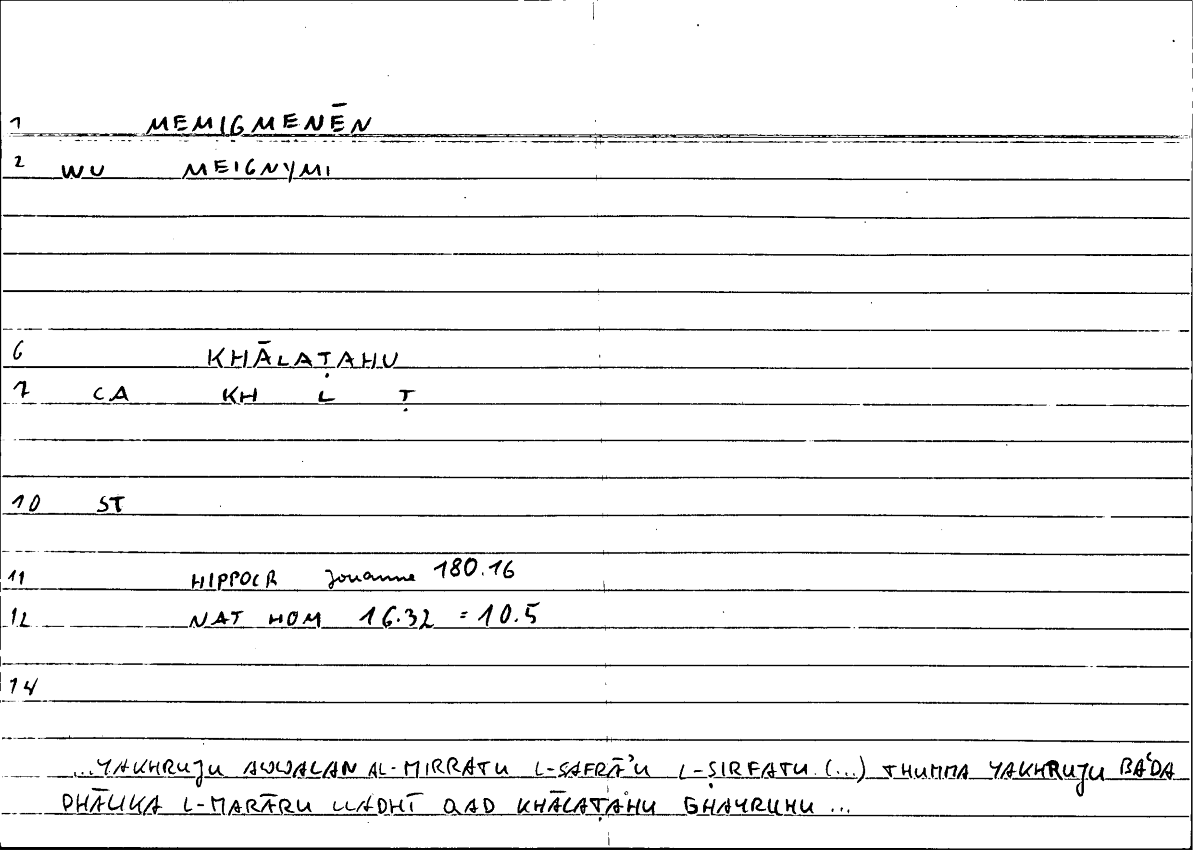 1 MEMIGMENĒN
2 WU MEIGNYMI
6 KHĀLAṬAHU
7 CA KH L Ṭ
10 ST
11 HIPPOCR Jouanne 180.16
12 NAT HOM 16.32 = 10.5
14
...YAKHRUJU AWWALAN AL-MIRRATU L-SAFRĀʾU L-ṢIRFATU (...) THUMMA YAKHRUJU BAʿDA
DHĀLIKA L-MARĀRU LLADHĪ QAD KHĀLAṬAHU GHAYRUHU ...